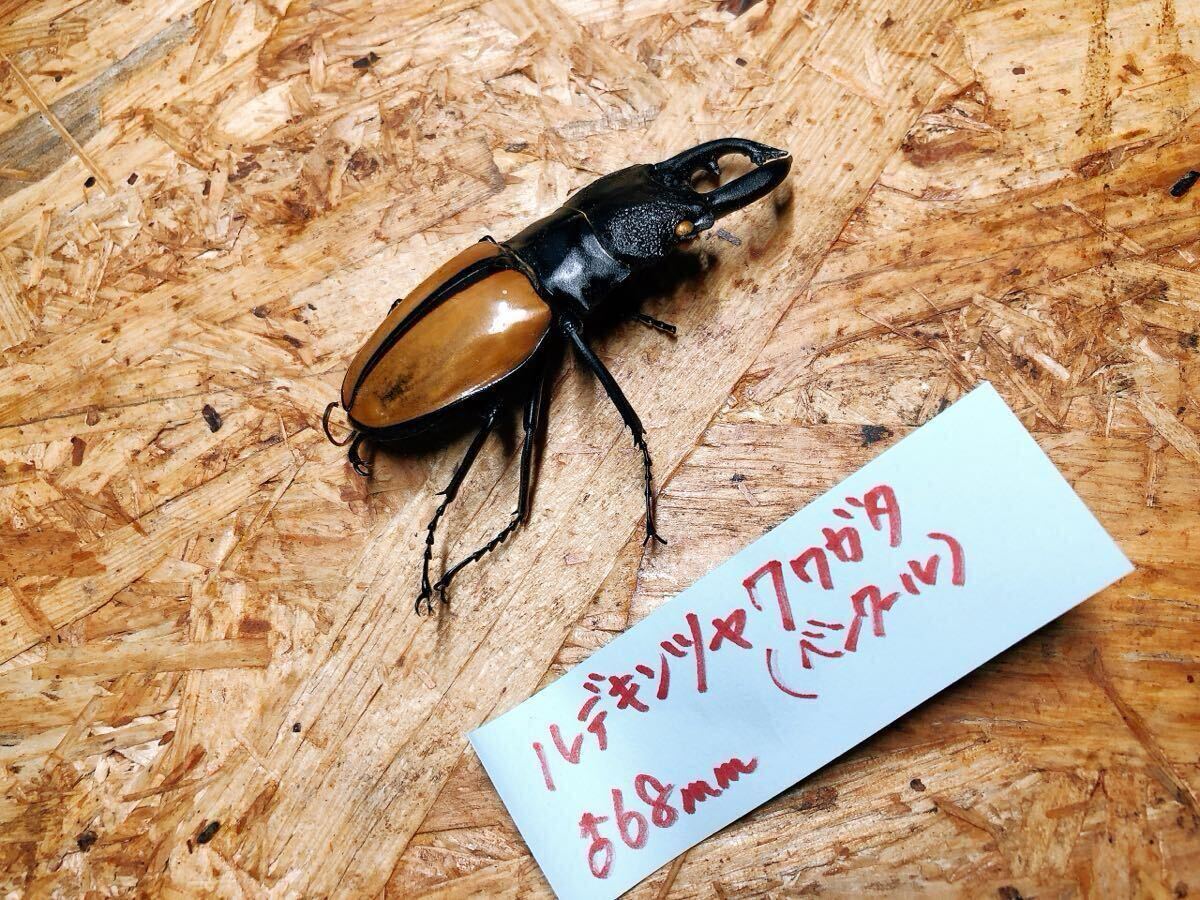 ルデキンツヤクワガタ
(ベンクール)
♂68mm